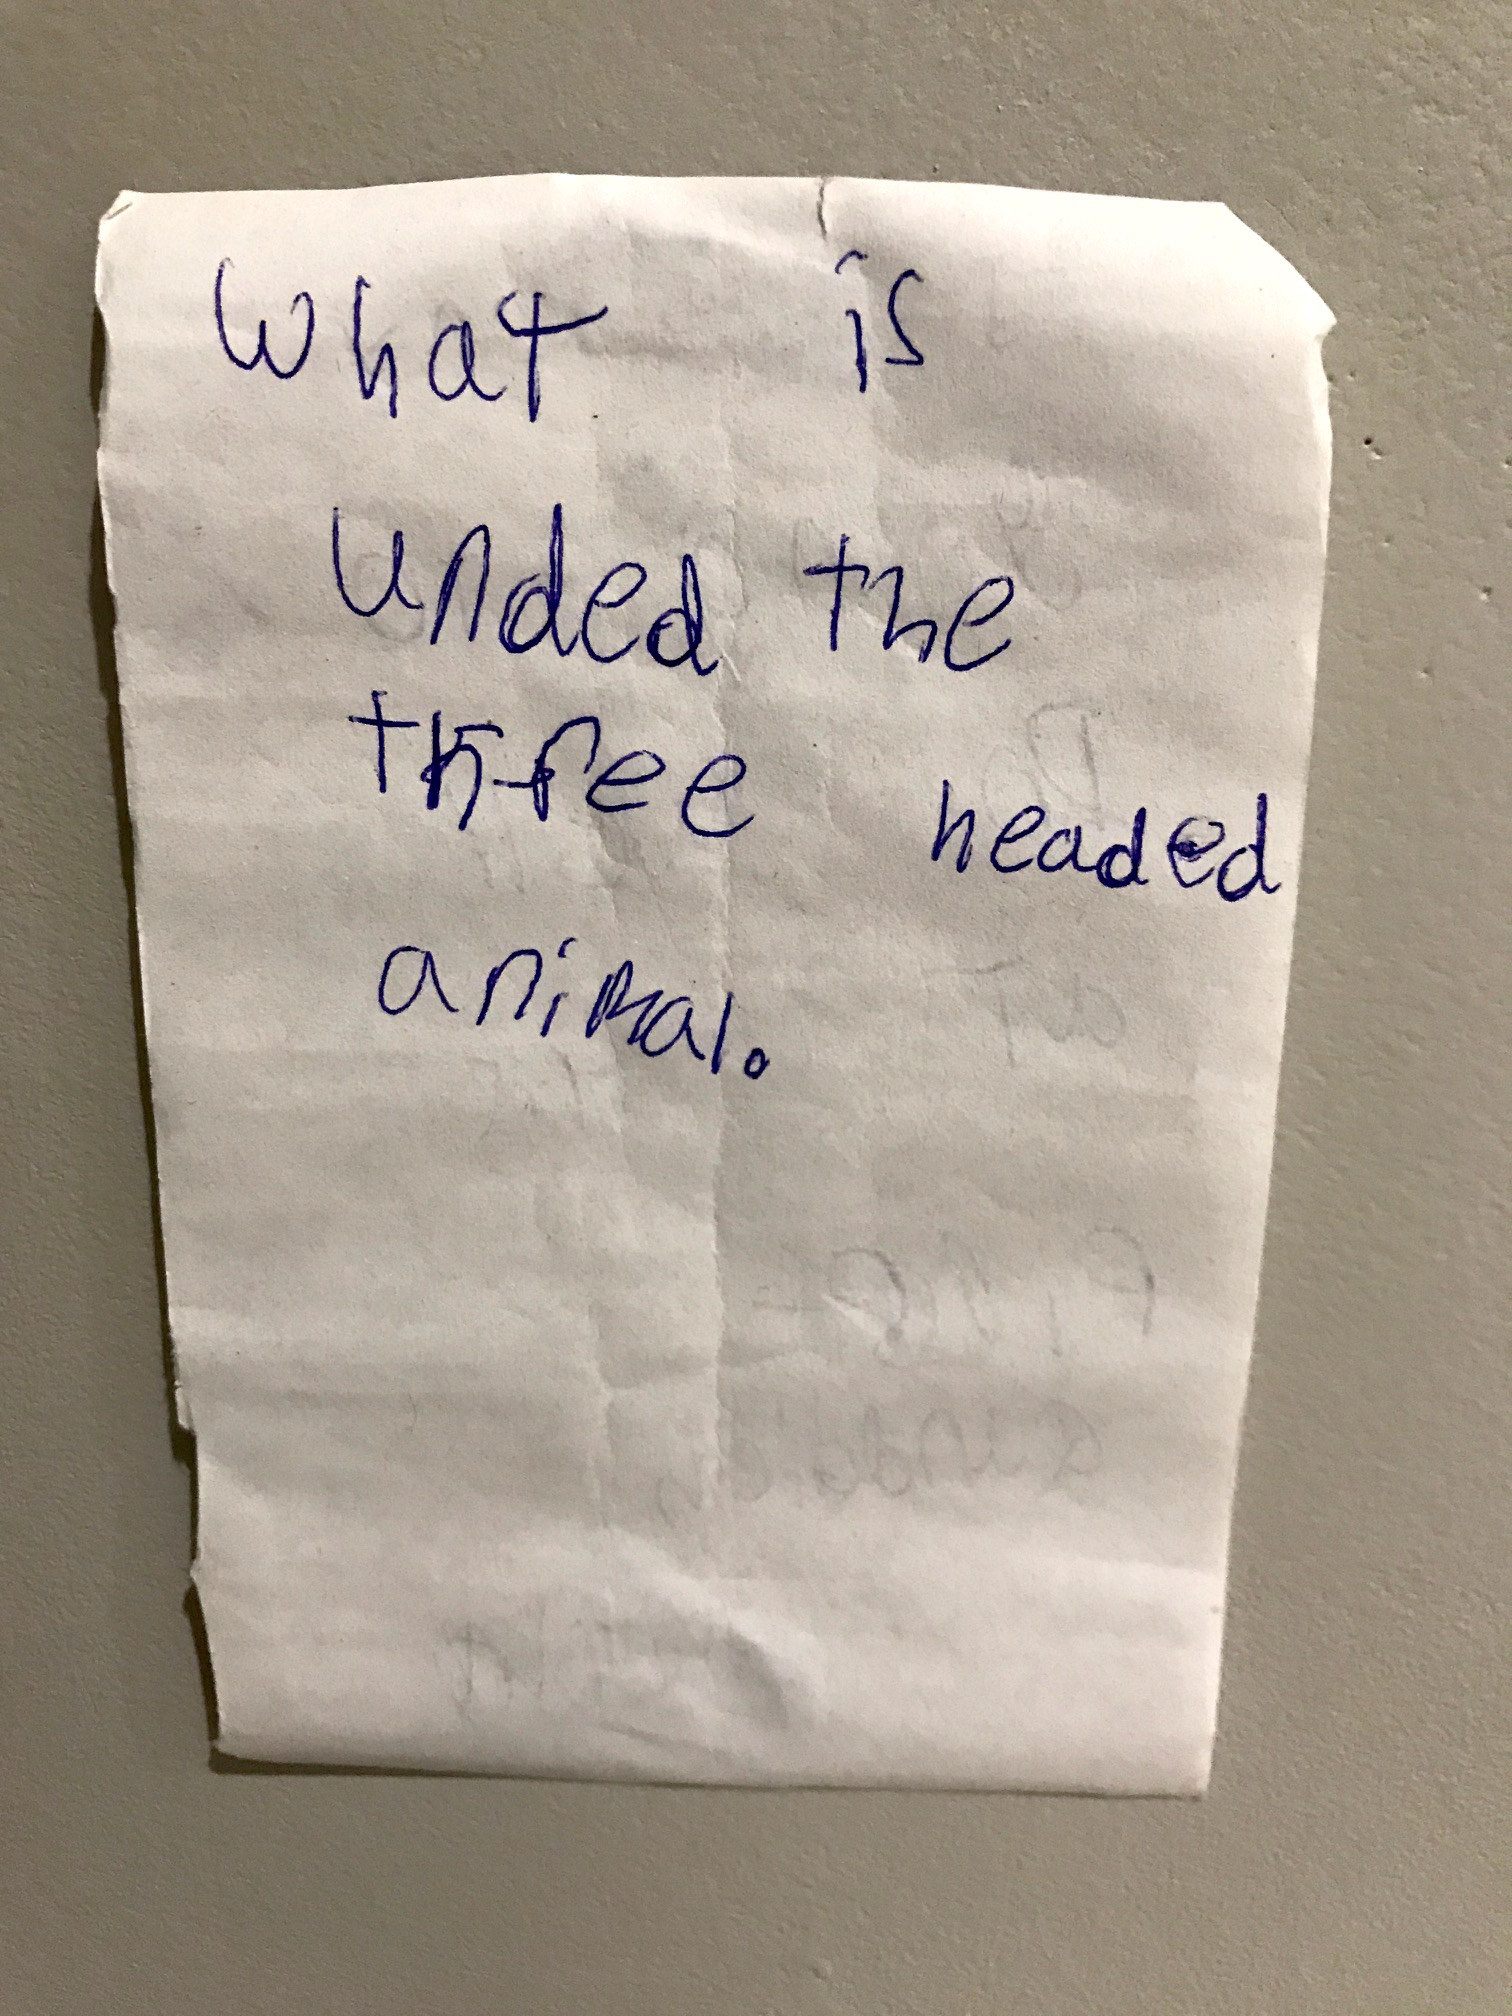 What is
unded the
three headed
animal.